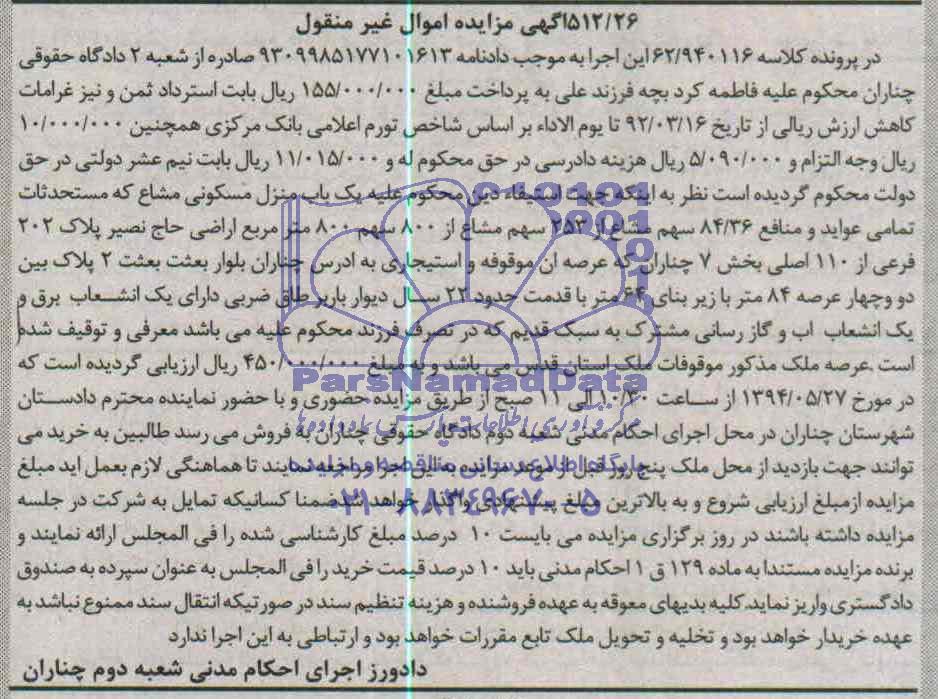 ۵۱۲/۲۶اگهی مزایده اموال غیر منقول
در پرونده کلاسه ۶۲/۹۴۰۱۱۶ این اجرا به موجب دادنامه ۹۳۰۹۹۸۵۱۷۷۱۰۱۶۱۳ صادره از شعبه ۲ دادگاه حقوقی
چناران محکوم علیه فاطمه کرد بچه فرزند علی به پرداخت مبلغ ۱۵۵/۰۰۰/۰۰۰ ریال بابت استرداد ثمن و نیز غرامات
کاهش ارزش ریالی از تاریخ ۹۲/۰۳/۱۶ تا یوم الاداء بر اساس شاخص تورم اعلامی بانک مرکزی همچنین ۱۰/۰۰۰/۰۰۰
ریال وجه التزام و ۵/۰۹۰/۰۰۰ ریال هزینه دادرسی در حق محکوم له و ۱۱/۰۱۵/۰۰۰ ریال بابت نیم عشر دولتی در حق
دولت محکوم گردیده است نظر به اینکه جهت استیفاء دین محکوم علیه یک باب منزل مسکونی مشاع که مستحدثات
تمامی عواید و منافع ۸۴/۳۶ سهم مشاع از ۲۵۳ سهم مشاع از ۸۰۰ سهم ۸۰۰ متر مربع اراضی حاج نصیر پلاک ۲۰۲
فرعی از ۱۱۰ اصلی بخش ۷ چناران که عرصه ان موقوفه و استیجاری به ادرس چناران بلوار بعثت بعثت ۲ پلاک بین
دو وچهار عرصه ۸۴ متر با زیر بنای ۶۴ متر با قدمت حدود ۲۲ سال دیوار باربر طاق ضربی دارای یک انشعاب برق و
یک انشعاب اب و گاز رسانی مشترک به سبک قدیم که در تصرف فرزند محکوم علیه می باشد معرفی و توقیف شده
است .عرصه ملک مذکور موقوفات ملک استان قدس می باشد و به مبلغ ۴۵۰/۰۰۰/۰۰۰ ریال ارزیابی گردیده است که
در مورخ ۱۳۹۴/۰۵/۲۷ از ساعت ۱۰/۳۰ الی ۱۱ صبح از طریق مزایده حضوری و با حضور نماینده محترم دادستان
شهرستان چناران در محل اجرای احکام مدنی شعبه دوم دادگاه حقوقی چناران به فروش می رسد طالبین به خرید می
توانند جهت بازدید از محل ملک پنج روز قبل از موعد مزایده به این اجرا مراجعه نمایند تا هماهنگی لازم بعمل اید مبلغ
مزایده ازمبلغ ارزیابی شروع و به بالاترین مبلغ پیشنهادی واگذار خواهد شد ضمنا کسانیکه تمایل به شرکت در جلسه
مزایده داشته باشند در روز برگزاری مزایده می بایست ۱۰ درصد مبلغ کارشناسی شده را فی المجلس ارائه نمایند و
برنده مزایده مستندا به ماده ۱۲۹ ق ۱ احکام مدنی باید ۱۰ درصد قیمت خرید را فی المجلس به عنوان سپرده به صندوق
دادگستری واریز نماید.کلیه بدیهای معوقه به عهده فروشنده و هزینه تنظیم سند در صورتیکه انتقال سند ممنوع نباشد به
عهده خریدار خواهد بود و تخلیه و تحویل ملک تابع مقررات خواهد بود و ارتباطی به این اجرا ندارد
دادورز اجرای احکام مدنی شعبه دوم چناران
ParsNamadData
مرکز فرآوری اطلاعات پارس نماد داده ها
پایگاه اطلاع رسانی مناقصه و مزایده
۰۲۱-۸۸۳۴۹۶۷۰-۵